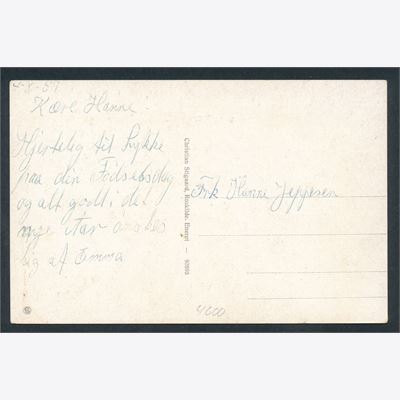 4-8-51
Kære Hanne!
Hjertelig til Lykke
paa din Födselsdag
og alt godt i det
nye Aar önskes
dig af Emma
Christian Stigaard, Roskilde, Eneret — 92093
Frk Hanne Jeppesen
4600